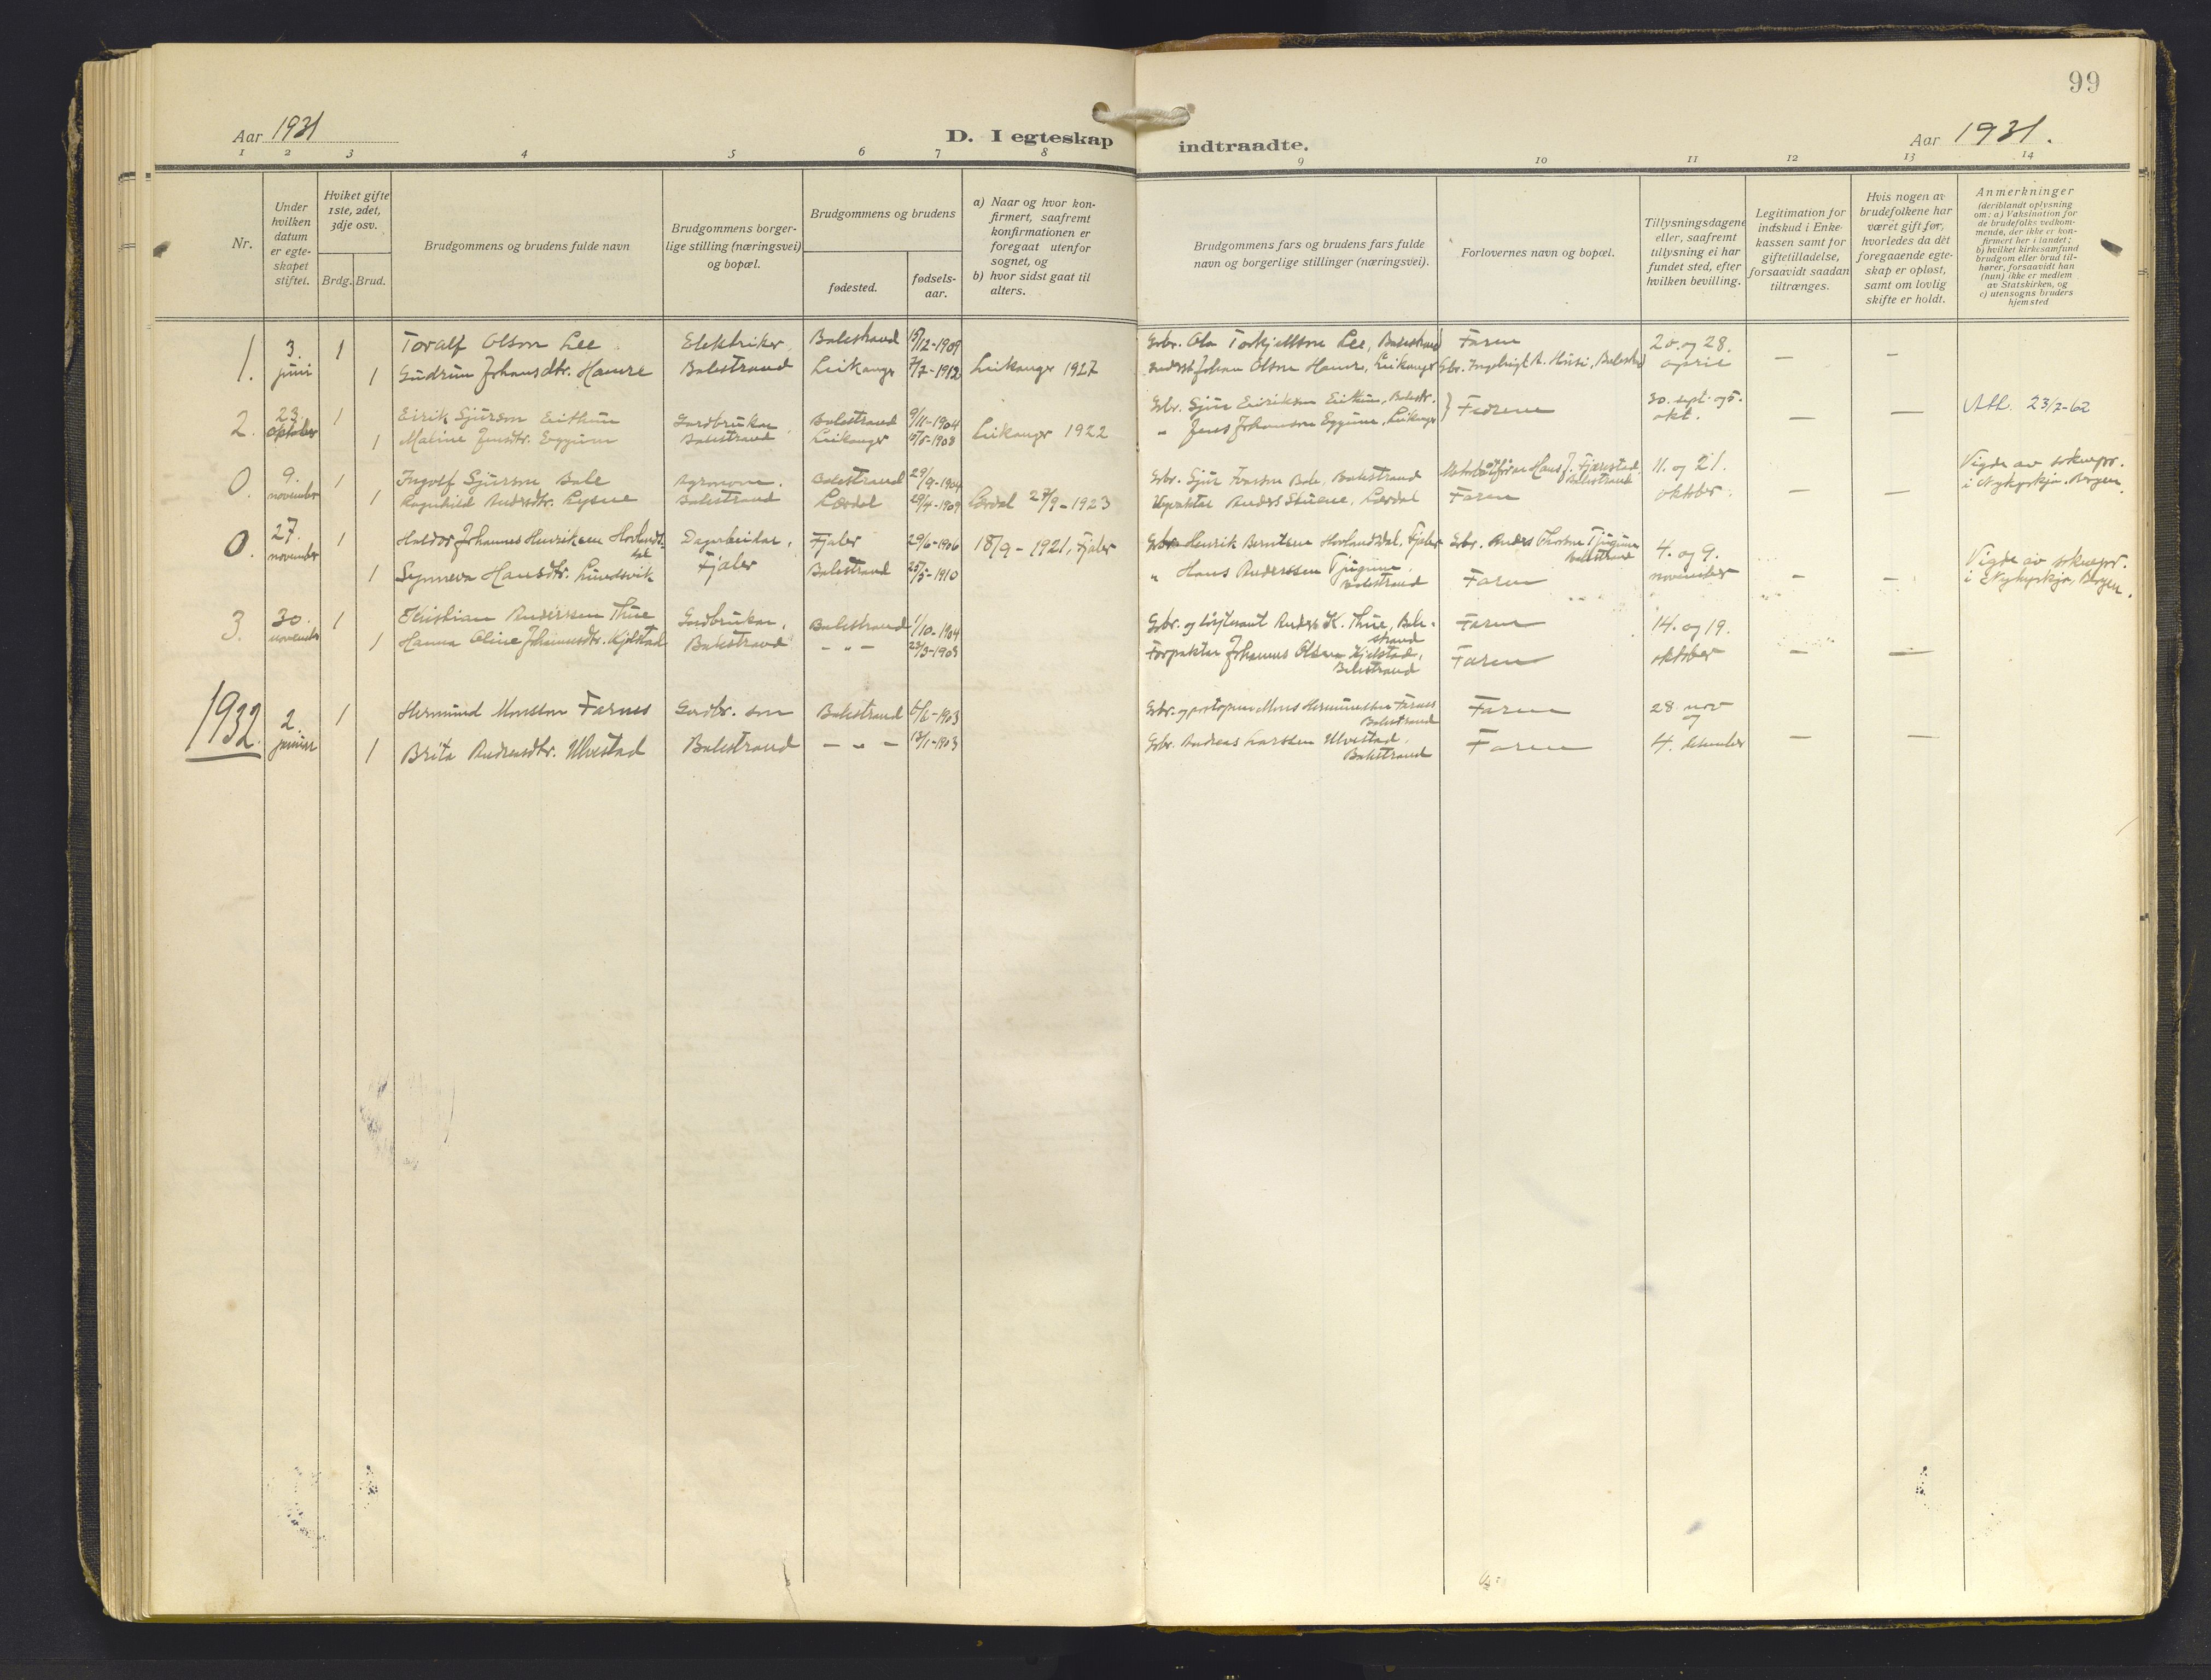 99
Aar 1931
D. I egteskap indtraadte.
Aar 1931.
1 2 3 4 5 6 7 8 9 10 11 12 13 14
Nr.
Under hvilken datum er egteskapet stiftet.
Hviket gifte 1ste, 2det, 3dje osv.
Brdg. Brud.
Brudgommens og brudens fulde navn
Brudgommens borgerlige stilling (næringsvei) og bopæl.
Brudgommens og brudens
fødested.
fødselsaar.
a) Naar og hvor konfirmert, saafremt konfirmationen er foregaat utenfor sognet, og
b) hvor sidst gaat til alters.
Brudgommens fars og brudens fars fulde navn og borgerlige stillinger (næringsvei).
Forlovernes navn og bopæl.
Tillysningsdagene eller, saafremt tillysning ei har fundet sted, efter hvilken bevilling.
Legitimation for indskud i Enkekassen samt for giftetilladelse, forsaavidt saadan tiltrænges.
Hvis nogen av brudefolkene har været gift før, hvorledes da det foregaaende egteskap er opløst, samt om lovlig skifte er holdt.
Anmerkninger (deriblandt oplysning om: a) Vaksination for de brudefolks vedkommende, der ikke er konfirmert her i landet; b) hvilket kirkesamfund brudgom eller brud tilhører, forsaavidt han (hun) ikke er medlem av Statskirken, og c) utensogns bruders hjemsted
1. 3. juni 1 Toralf Olson Lee Elektriker, Balestrand 15/12-1909 Gbr. Ola Torkjellson Lee, Balestrand Faren 20. og 28. april — —
1 Gudrun Johansdtr. Hamre Balestrand Leikanger 7/7-1912 Leikanger 1927 Johan Olson Hamre, Leikanger Gbr. Ingebrigt A. Husi, Balestrd
2. 23. oktober 1 Eirik Sjurson Eirthun Gardbrukar, Balestrand 9/11-1904 Gbr. Sjur Eirikson Eirthun, Balestr. } Fedrene 30. sept. og 5. okt. — — Att. 23/2-62
1 Maline Jensdtr. Eggum Balestrand Leikanger 1908 Leikanger 1922 " Jens Johanson Eggum, Leikanger
0. 9. november 1 Ingolf Sjurson Bale Agronom, Balestrand 29/9-1904 Gbr. Sjur Ivarson Bale, Balestrand Hans J. Fjærestad, Balestrand 11. og 21. oktober. — — Vigde av soknepr. i Nykyrkja, Bergen
1 Ragnhild Andersdtr. Lysne Balestrand Lærdal 29/4-1909 Lærdal 27/9-1923 Anders Lærdal Faren
0. 27. november 1 Haldor Johannes Henriksen Hovlandsdal Dagarbeidar, Fjaler 29/6-1906 18/9-1921, Fjaler Gbr. Henrik Berntsen Hovlandsdal, Fjaler Gbr. Anders Tjugum Balestrand 4. og 9. november — — Vigde av soknepr. i Nykyrkja, Bergen.
1 Synneva Hansdtr. Lundsvik Fjaler Balestrand 25/5-1910 " Hans Anderssen Tjugum, Balestrand Faren
3. 30. november 1 Kristian Anderssen Thue Gardbrukar, Balestrand 1/10-1904 Gbr. og løitenant Anders K. Thue, Balestrand Faren 14. og 19. oktober — —
1 Hanna Oline Johannesdtr. Kjelstad Balestrand - " - 1903 Forpaktar Johannes Olsen Kjelstad, Balestrand Faren
1932. 2. januar 1 Hermund Monsson Farnes Gardbr. son Balestrand 6/6-1903 Gbr. og postopnar Mons Hermundson Farnes Balestrand Faren 28. nov og 4. desember — —
1 Brita Andreasdtr. Ulvestad Balestrand - " - 13/1-1903 Gbr. Andreas Larssen Ulvestad, Balestrand Faren